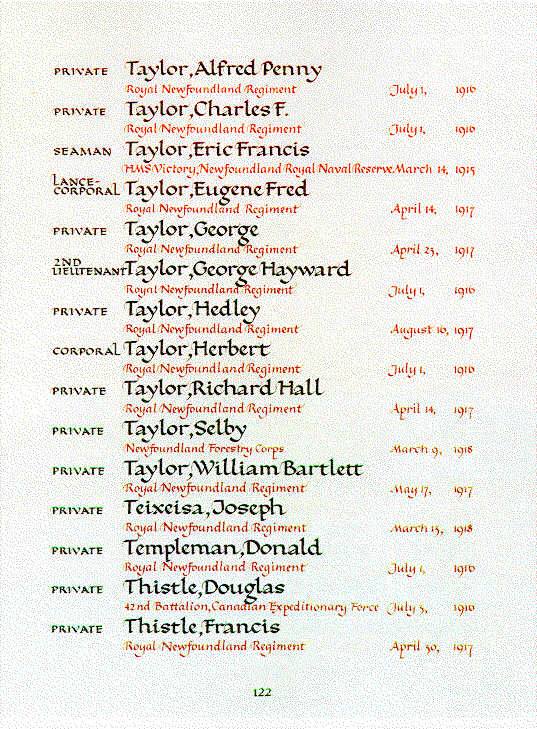 PRIVATE Taylor, Alfred Penny
Royal Newfoundland Regiment July 1, 1916
PRIVATE Taylor, Charles F.
Royal Newfoundland Regiment July 1, 1916
SEAMAN Taylor, Eric Francis
HMS Victory, Newfoundland Royal Naval Reserve March 14, 1915
LANCE-CORPORAL Taylor, Eugene Fred
Royal Newfoundland Regiment April 14, 1917
PRIVATE Taylor, George
Royal Newfoundland Regiment April 23, 1917
2ND LIEUTENANT Taylor, George Hayward
Royal Newfoundland Regiment July 1, 1916
PRIVATE Taylor, Hedley
Royal Newfoundland Regiment August 16, 1917
CORPORAL Taylor, Herbert
Royal Newfoundland Regiment July 1, 1916
PRIVATE Taylor, Richard Hall
Royal Newfoundland Regiment April 14, 1917
PRIVATE Taylor, Selby
Newfoundland Forestry Corps March 9, 1918
PRIVATE Taylor, William Bartlett
Royal Newfoundland Regiment May 17, 1917
PRIVATE Teixeisa, Joseph
Royal Newfoundland Regiment March 13, 1918
PRIVATE Templeman, Donald
Royal Newfoundland Regiment July 1, 1916
PRIVATE Thistle, Douglas
42nd Battalion, Canadian Expeditionary Force July 5, 1916
PRIVATE Thistle, Francis
Royal Newfoundland Regiment April 30, 1917
122